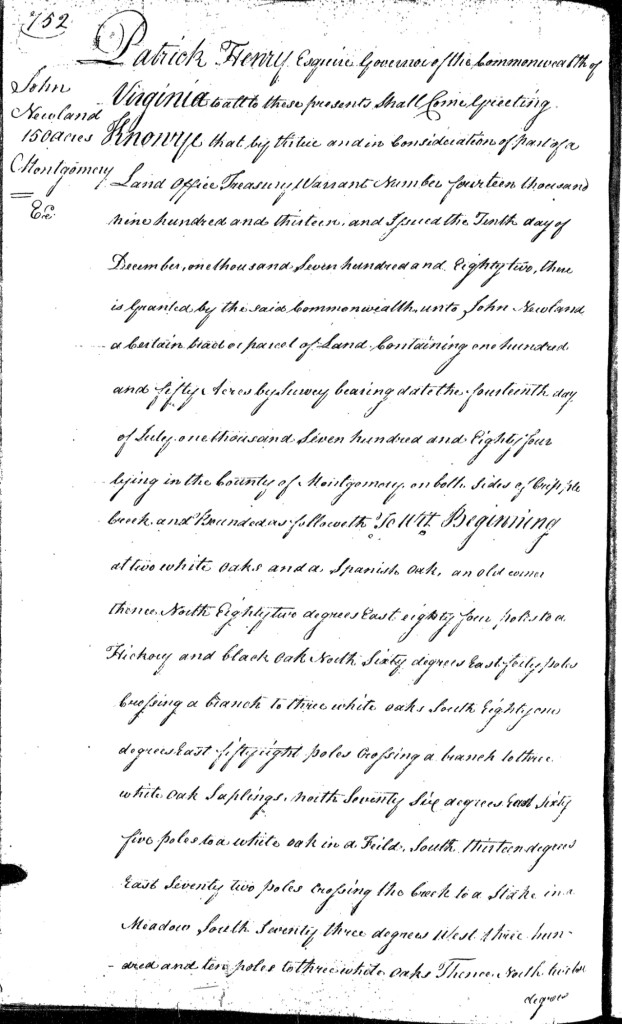 752
John
Newland
150 acres
Montgomery
Patrick Henry Esquire Governor of the Commonwealth of
Virginia to all to these presents Shall Come Greeting
Know ye that by Virtue and in Consideration of part of a
Land Office Treasury Warrant Number fourteen thousand
nine hundred and thirteen, and Issued the Tenth day of
December, one thousand Seven hundred and Eighty two, there
is Granted by the said Commonwealth, unto John Newland
a Certain tract or parcel of Land, Containing one hundred
and fifty Acres by Survey bearing date the fourteenth day
of July one thousand Seven hundred and Eighty four
lying in the County of Montgomery on both Sides of Cripple
Creek and Bounded as followeth To Wit Beginning
at two white oaks and a Spanish oak, an old corner
thence North Eighty two degrees East eighty four poles to a
Hickory and black oak North Sixty degrees East forty poles
Crossing a branch to three white oaks South Eighty one
degrees East fifty eight poles Crossing a branch to three
white oak Saplings, north Seventy Six degrees East Sixty
five poles to a white oak in a Feild, South thirteen degrees
East Seventy two poles Crossing the Creek to a Stake in a
Meadow South Seventy three degrees West three hun-
-dred and ten poles to three white oaks Thence North twelve
degrees